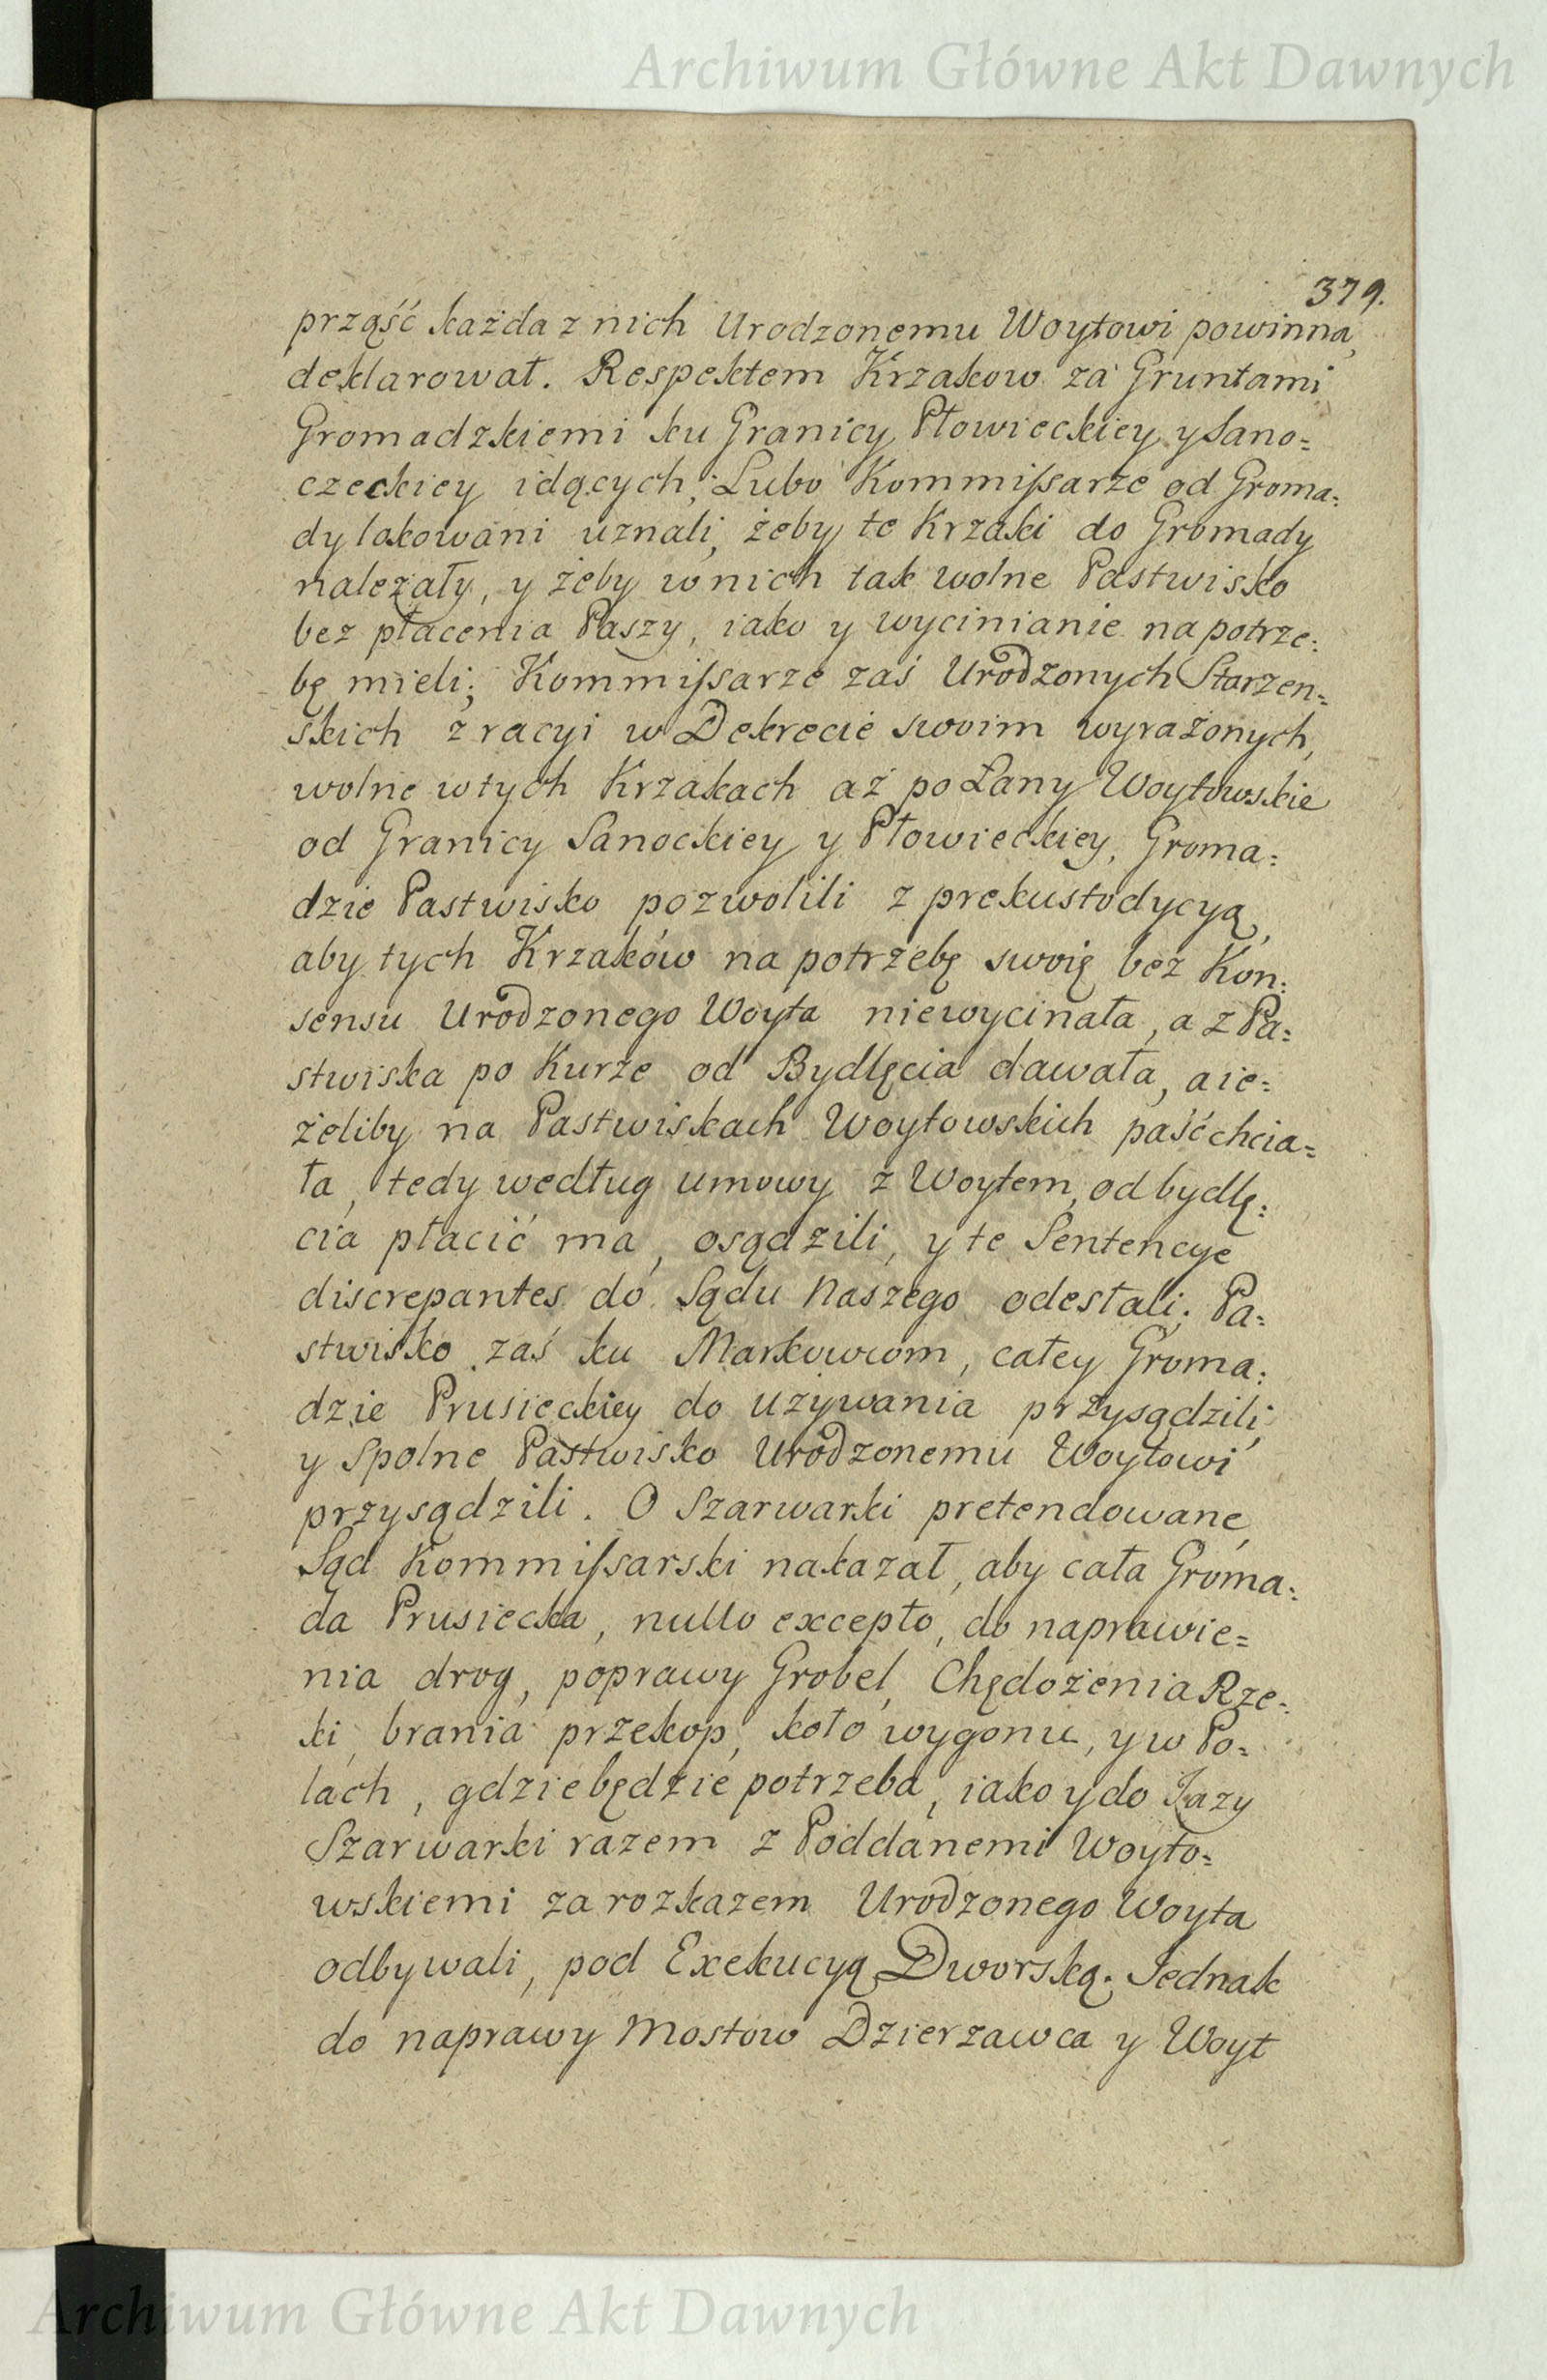 Archiwum Główne Akt Dawnych
379.
prząść każda z nich Urodzonemu Woytowi powinna,
deklarował. Respektem Krzakow za Gruntami
Gromadzkiemi ku Granicy Płowieckiey y Sano=
czeckiey idących, Lubo Kommißarze od Groma=
dy lakowani uznali, żeby te Krzaki do Gromady
należały, y żeby w nich tak wolne Pastwisko
bez płacenia Paszy, iako y wycinianie na potrze=
bę mieli; Kommißarze zaś Urodzonych Starzen=
skich z racyi w Dekrecie swoim wyrażonych,
wolne w tych Krzakach aż po Łany Woytowskie
od Granicy Sanockiey y Płowieckiey, Groma=
dzie Pastwisko pozwolili z prekustodycyą,
aby tych Krzaków na potrzebę swoię bez Kon=
sensu Urodzonego Woyta niewycinała, a z Pa=
stwiska po Kurze od Bydlęcia dawała, a ie=
żeliby na Pastwiskach Woytowskich paść chcia=
ła, tedy według umowy z Woytem, od bydlę=
cia płacić ma, osądzili, y te Sentencye
discrepantes do Sądu Naszego odesłali. Pa=
stwisko zaś ku Markowcom, całey Groma=
dzie Prusieckiey do używania przysądzili,
y spolne Pastwisko Urodzonemu Woytowi
przysądzili. O Szarwarki pretendowane,
Sąd Kommißarski nakazał, aby cała Groma=
da Prusiecka, nullo excepto, do naprawie=
nia drog, poprawy Grobel, Chędożenia Rze=
ki, brania przekop, koło wygonu, y w Po=
lach, gdzie będzie potrzeba, iako y do Jazy
Szarwarki razem z Poddanemi Woyto=
wskiemi za rozkazem Urodzonego Woyta
odbywali, pod Exekucyą Dworską. Jednak
do naprawy Mostow Dzierzawca y Woyt
Archiwum Główne Akt Dawnych